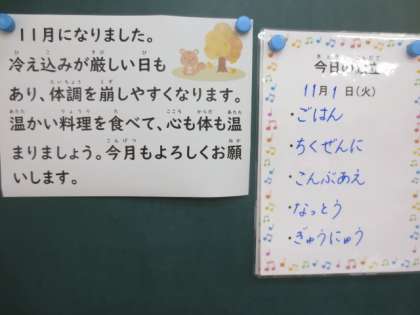 11月になりました。
冷え込みが厳しい日も
あり、体調を崩しやすくなります。
温かい料理を食べて、心も体も温
まりましょう。今月もよろしくお願
いします。
今日の献立
11月1日(火)
・ごはん
・ちくぜんに
・こんぶあえ
・なっとう
・ぎゅうにゅう